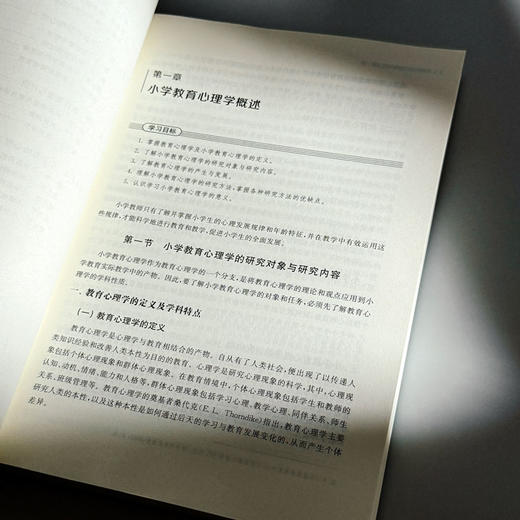 第一章
小学教育心理学概述
学习目标
1. 掌握教育心理学及小学教育心理学的定义。
2. 了解小学教育心理学的研究对象与研究内容。
3. 了解教育心理学的产生与发展。
4. 理解小学教育心理学的研究方法,掌握各种研究方法的优缺点。
5. 认识学习小学教育心理学的意义。
小学教师只有了解并掌握小学生的心理发展规律和年龄特征,并在教学中有效运用这
些规律,才能科学地进行教育和教学,促进小学生的全面发展。
第一节 小学教育心理学的研究对象与研究内容
小学教育心理学作为教育心理学的一个分支,是将教育心理学的理论和观点应用到小
学教育实际教学中的产物。因此,要了解小学教育心理学的对象和任务,必须先了解教育心
理学的学科性质。
一、教育心理学的定义及学科特点
(一)教育心理学的定义
教育心理学是心理学与教育相结合的产物。自从有了人类社会,便出现了以传递人
类知识经验和改善人类本性为目的的教育。心理学是研究心理现象的科学,其中,心理现
象包括个体心理现象和群体心理现象。在教育情境中,个体心理现象包括学生和教师的
认知、动机、情绪、能力和人格等,群体心理现象包括学习心理、教学心理、同伴关系、师生
关系、班级管理等。教育心理学的奠基者桑代克(E. L. Thorndike)指出,教育心理学主要
研究人类的本性,以及这种本性是如何通过后天的学习与教育发展变化的,从而产生个体
差异。